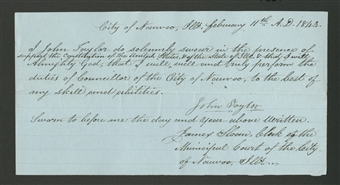 City of Nauvoo, Ills. February 11th A.D. 1843.
I John Taylor do solemnly swear in the presence of
support the constitution of the United States, & of the State of Ills. & that I will
Almighty God, that I will, well and truly perform the
duties of Councillor of the City of Nauvoo, to the best of
my skill and abilities.
John Taylor
Sworn to before me the day and year above written.
James Sloan, Clerk of the
Municipal Court of the City
of Nauvoo, Ills.